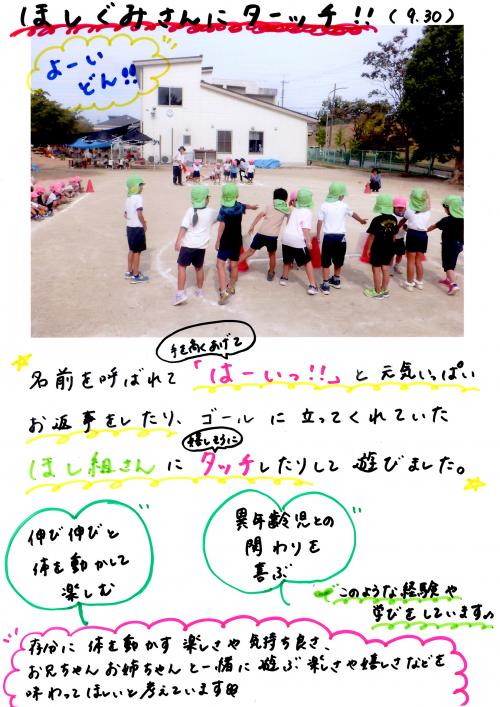 ほしぐみさんにターッチ!!(9.30)
よーい
どん!!
手を高くあげて
名前を呼ばれて「はーいっ!!」と元気いっぱい
お返事をしたり、ゴールに立ってくれていた
嬉しそうに
ほし組さんにタッチしたりして遊びました。
伸び伸びと
体を動かして
楽しむ
異年齢児との
関わりを
喜ぶ
このような経験や
学びをしています。
存分に体を動かす楽しさや気持ち良さ、
お兄ちゃんお姉ちゃんと一緒に遊ぶ楽しさや嬉しさなどを
味わってほしいと考えています